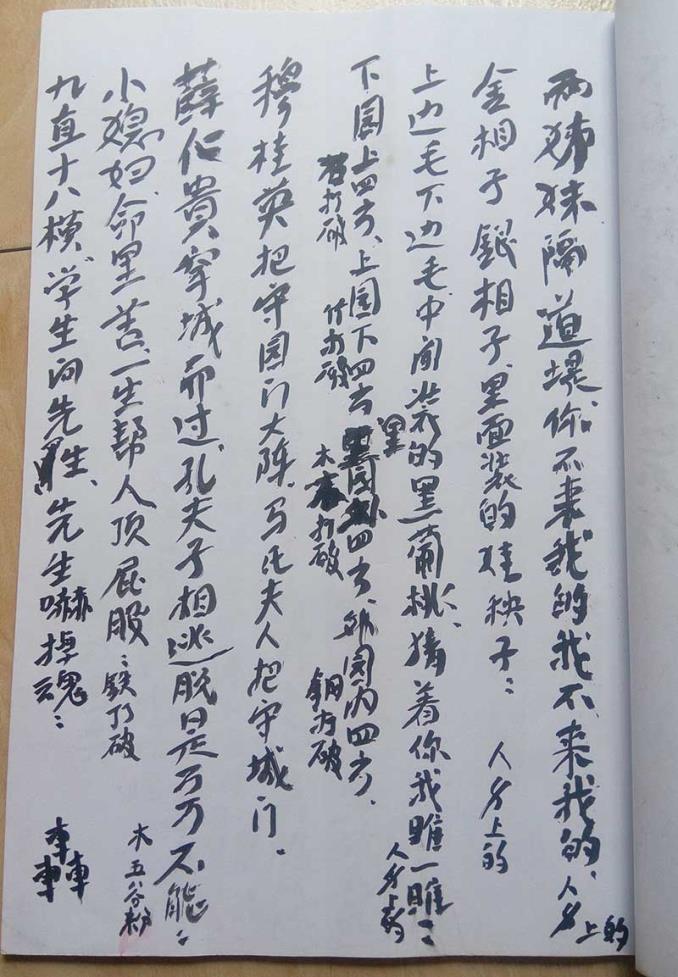 两姊妹隔道堤、你不来我的我不来我的、人身上的
金相子银相子、里面装的娃秧子：人身上的
上边毛下边毛、中间装的黑葡桃、猜着你我雎一雎：人身上的
下园上四方、上园下四方 里 四方、外园内四方、
打破 竹打破 木 打破 铜打破
穆桂英把守园门大阵、马氏夫人把守城门．
薛仁貴穿城而过、孔夫子相逃脱是万万不能：
小媳妇、命里苦、一生帮人顶屁股：铁打破 木五谷
九直十八横、学生问先生、先生嚇掉魂：
車車車